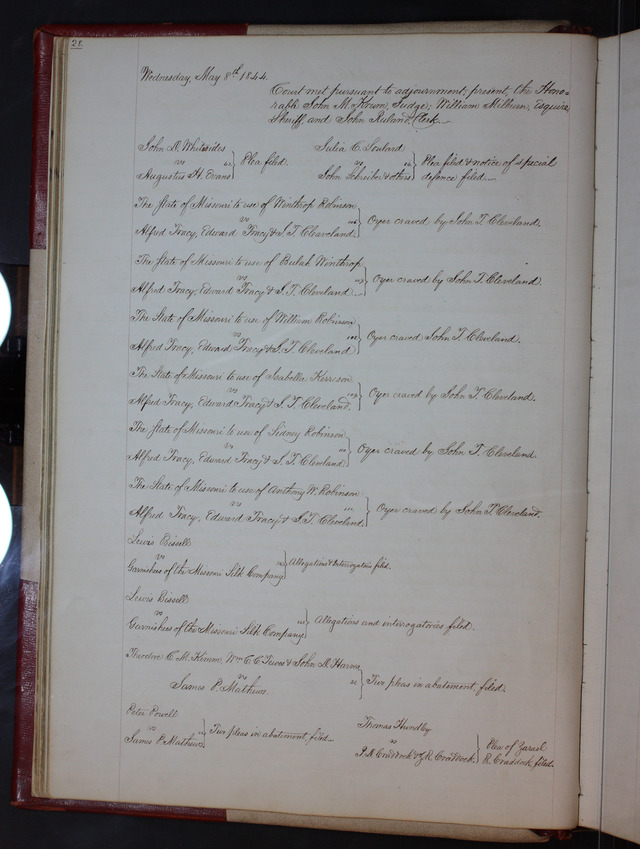 28.
Wednesday, May 8th 1844.
Court met pursuant to adjournment; present, the Hono-
rable John M. Krum, Judge; William Milburn, Esquire,
Sheriff, and John Ruland, Clerk.
John D. Whitesides
vs
Augustus H. Evans } Plea filed.
Julia C.
vs
John Schreiber & others } Plea filed & notice of special
defence filed.
The State of Missouri to use of Winthrop Robinson
vs
Alfred Tracy, Edward Tracy & S. T. Cleaveland. } Oyer craved by John T. Cleveland.
The State of Missouri to use of Beulah Winthrop
vs
Alfred Tracy, Edward Tracy & S. T. Cleveland. } Oyer craved by John T. Cleveland.
The State of Missouri to use of William Robinson
vs
Alfred Tracy, Edward Tracy & S. T. Cleveland } Oyer craved John T. Cleveland.
The State of Missouri to use of Isabella Kerrison
vs
Alfred Tracy, Edward Tracy & S. T. Cleveland. } Oyer craved by John T. Cleveland.
The State of Missouri to use of Sidney Robinson
vs
Alfred Tracy, Edward Tracy & S. T. Cleveland } Oyer craved by John T. Cleveland.
The State of Missouri to use of Anthony W. Robinson
vs
Alfred Tracy, Edward Tracy & S. T. Cleveland. } Oyer craved by John T. Cleveland.
Lewis Bissell
vs
Garnishees of the Missouri Silk Company } Allegations & Interrogatories filed.
Lewis Bissell
vs
Garnishees of the Missouri Silk Company } Allegations and interrogatories filed.
Theodore C. M. Kimm, Wm C. C. & John D.
vs
James P. Mathews. } Two pleas in abatement, filed.
Peter Powell
vs
James P. Mathews } Two pleas in abatement, filed.
Thomas Hundley
vs
P. D. Craddock & Z. R. Craddock. } Plea of
R. Craddock, filed.